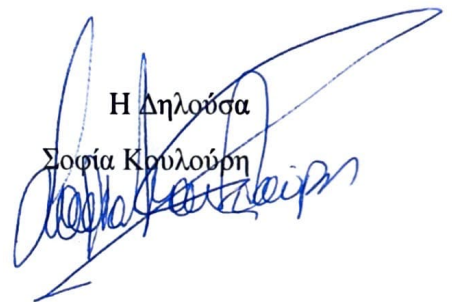 Η Δηλούσα
Σοφία Κουλούρη